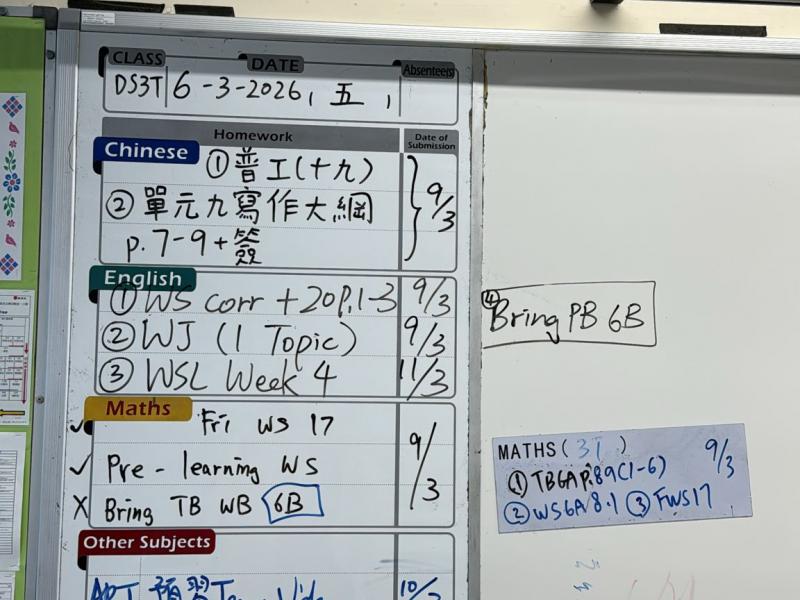 CLASS DATE Absentee(s)
DS3T 6-3-2026, 五,
Homework Date of Submission
Chinese ① 普工(十九)
② 單元九寫作大網 9/3
p.7-9+簽
English
① WS corr + 20P.1-3 9/3
② WJ (1 Topic) 9/3
③ WSL Week 4 11/3
Maths
✓ Fri WS 17 9/3
✓ Pre-learning WS
X Bring TB WB 6B
Other Subjects
預習
④ Bring PB 6B
MATHS (3T) 9/3
① TB6A P.89(1-6)
② WS6A 8.1 ③ FWS17